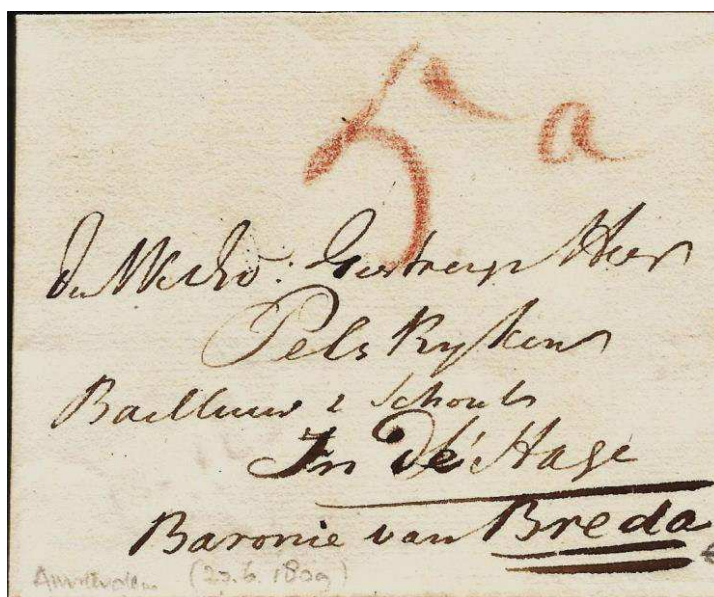 5 a
den WelEd: Gestrenge Heer
Pels Rykens
Bailluw & Schout
In de Hage
Baronie van Breda
Amsterdam (23.6.1809)